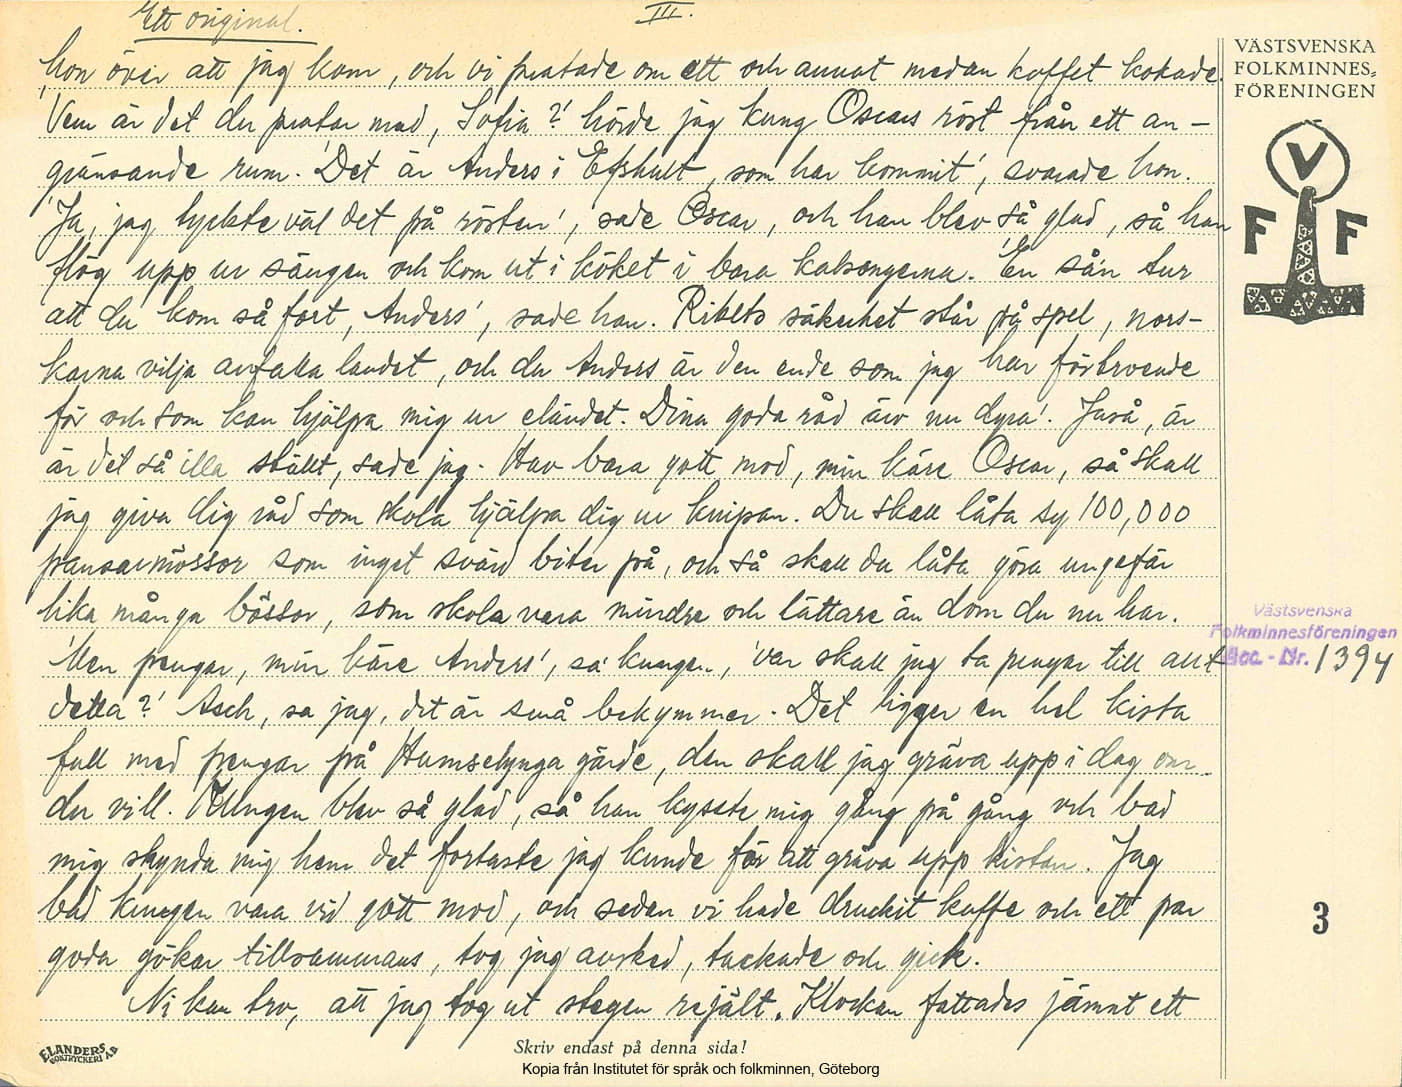 Ett original.
III.
hon över att jag kom, och vi pratade om ett och annat medan kaffet kokade.
'Vem är det du pratar med, Sofia?' hörde jag kung Oscars röst från ett an-
gränsande rum. 'Det är Anders i Efshult, som har kommit', svarade hon.
'Ja, jag tyckte väl det på rösten', sade Oscar, och han blev så glad, så han
flög upp ur sängen och kom ut i köket i bara kalsongerna. 'En så'n tur
att du kom så fort, Anders', sade han. Rikets säkerhet står på spel, nors-
karna vilja anfalla landet, och du Anders är den ende som jag har förtroende
för och som kan hjälpa mig ur eländet. Dina goda råd äro nu dyra'. Jaså, är
är det så illa ställt, sade jag. Hav bara gott mod, min käre Oscar, så skall
jag giva dig råd som skola hjälpa dig ur knipan. Du skall låta sy 100,000
pansarmössor som inget svärd biter på, och så skall du låta göra ungefär
lika många bössor, som skola vara mindre och lättare än dom du nu har.
'Men pengar, min käre Anders', sa' kungen, 'var skall jag ta pengar till allt
detta?' Asch, sa jag, det är små bekymmer. Det ligger en hel kista
full med pengar på Humselynga gärde, den skall jag gräva upp i dag om
du vill. Kungen blev så glad, så han kysste mig gång på gång och bad
mig skynda mig hem det fortaste jag kunde för att gräva upp kistan. Jag
bad kungen vara vid gott mod, och sedan vi hade druckit kaffe och ett par
goda gökar tillsammans, tog jag avsked, tackade och gick.
Ni kan tro, att jag tog ut stegen rejält. Klockan fattades jämnt ett
VÄSTSVENSKA
FOLKMINNES-
FÖRENINGEN
V
F F
Västsvenska
Folkminnesföreningen
Acc. - Nr. 1394
3
ELANDERS
BOKTRYCKERI A B
Skriv endast på denna sida!
Kopia från Institutet för språk och folkminnen, Göteborg